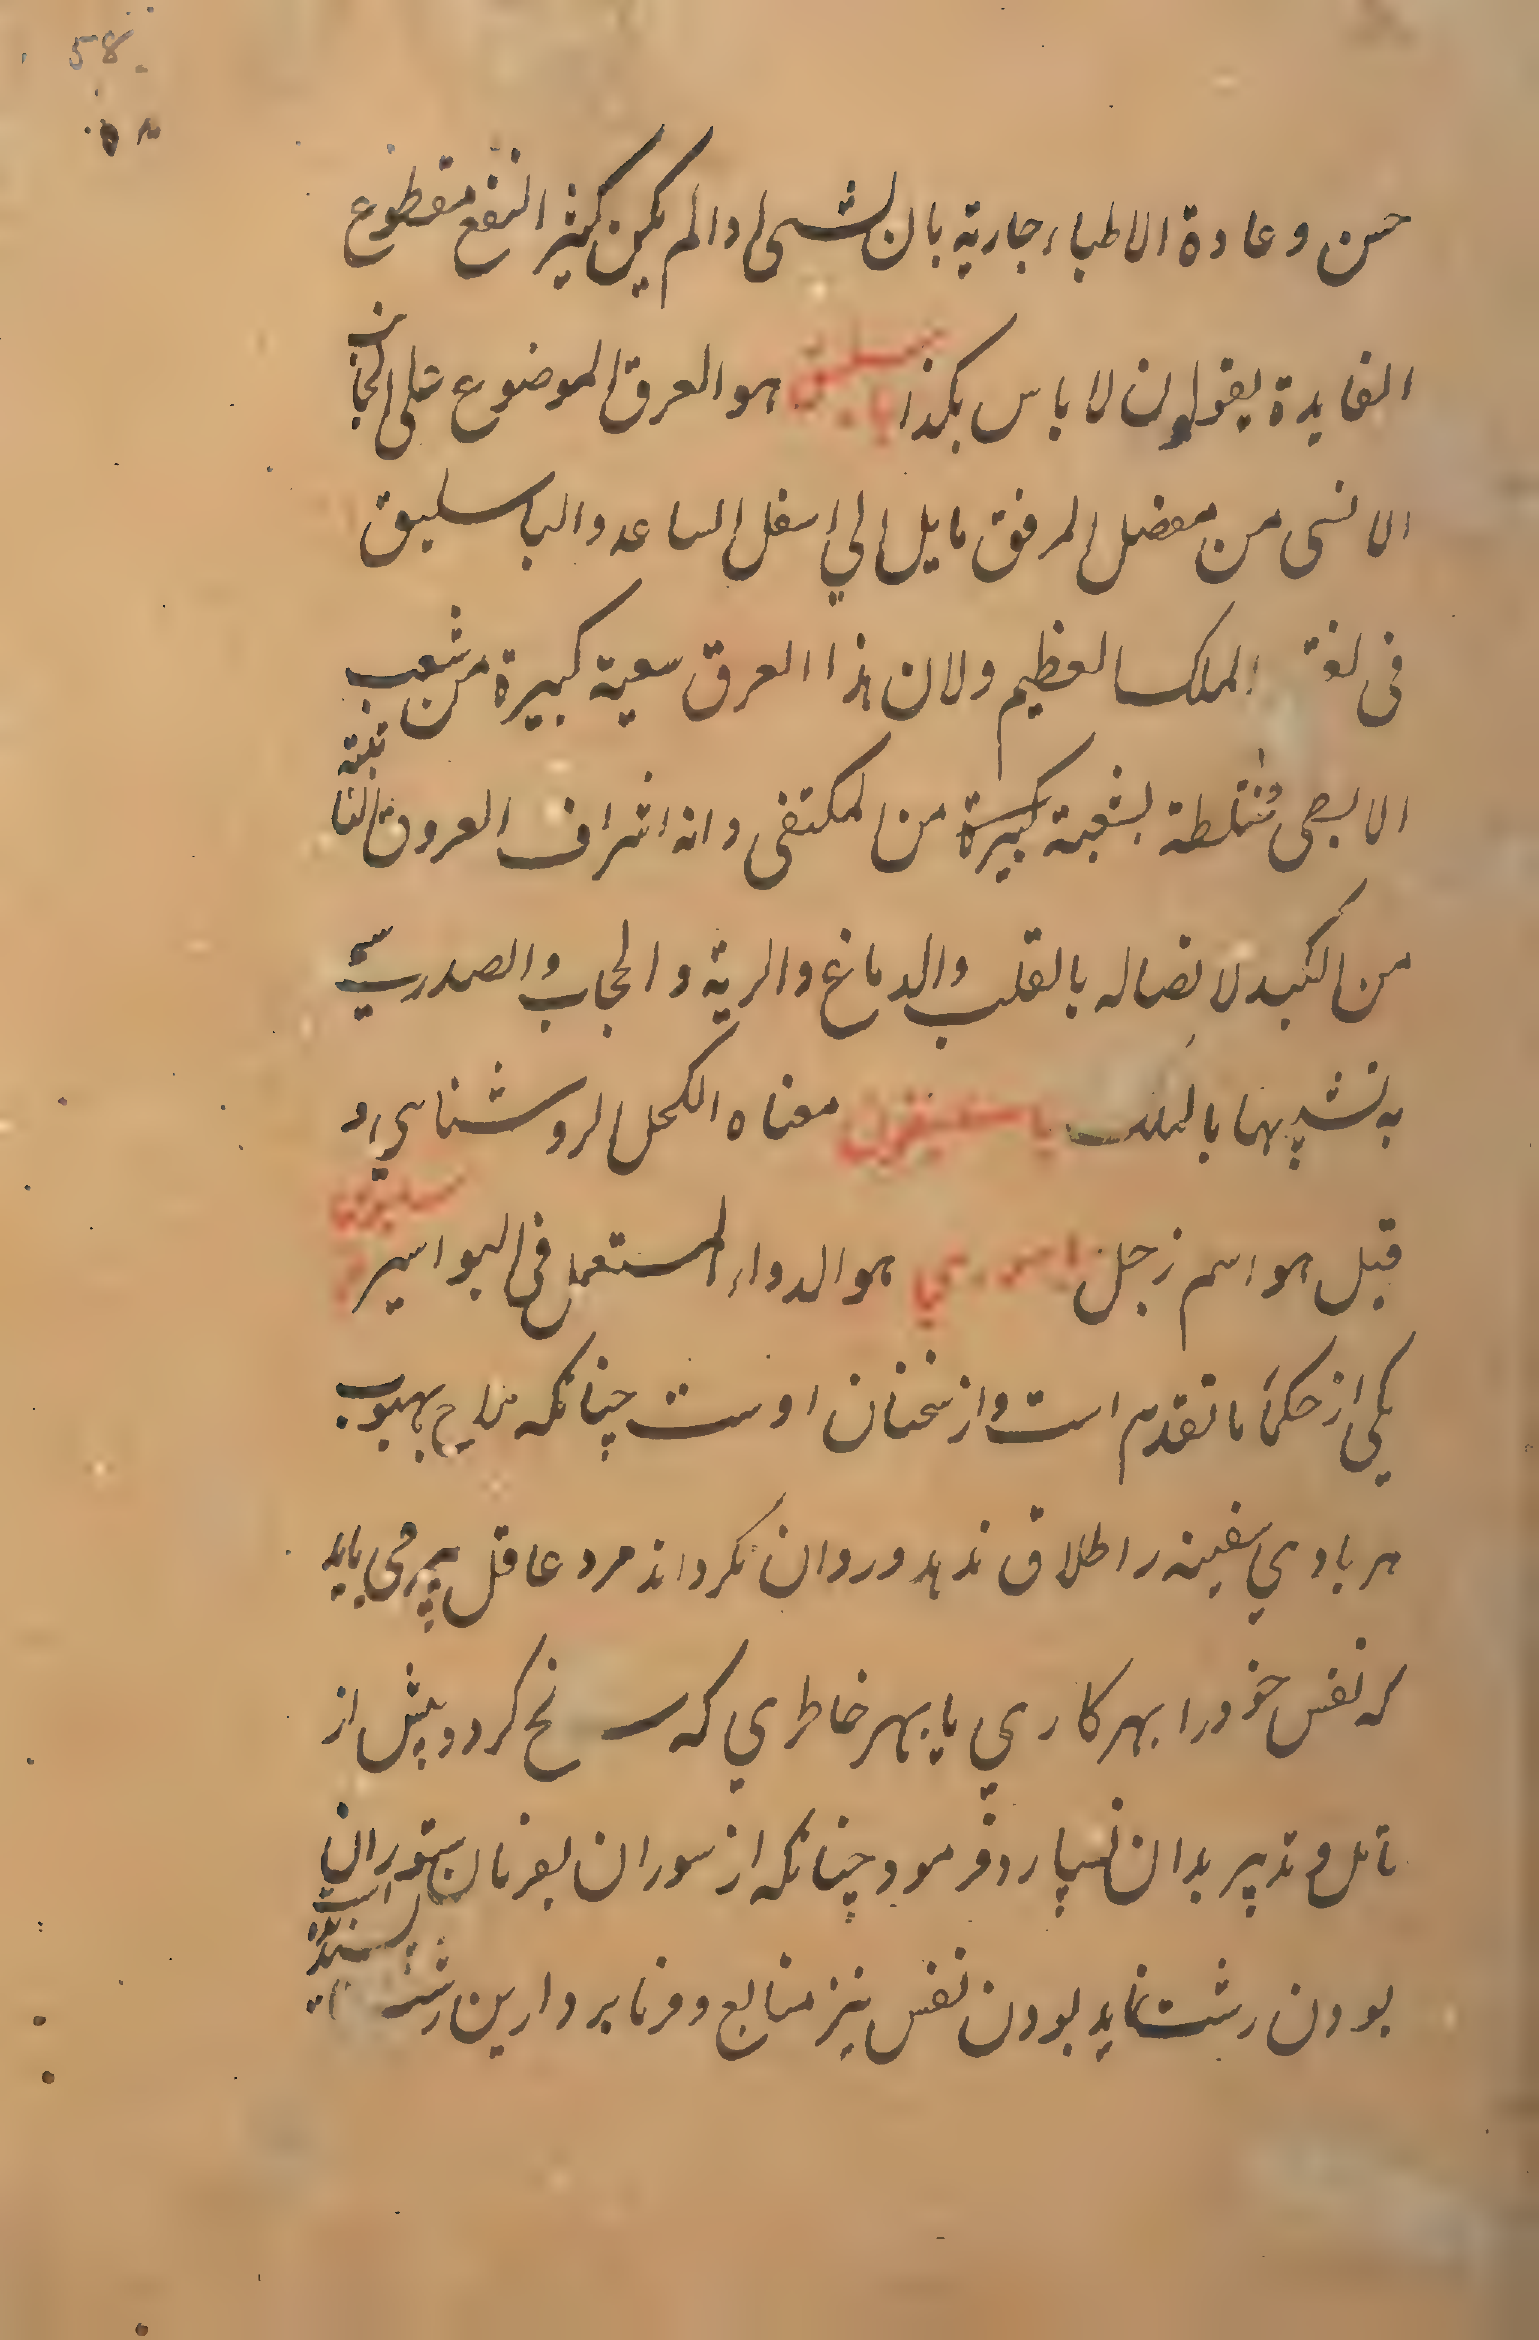 58
۵۸
حسن وعادة الاطباء جارية بان الشی اذا لم يكن كثير النفع مقطوع
الفايدة يقولون لا باس بكذا باسليق هو العرق الموضوع علی الجانب
الانسی من مفصل المرفق مايل الي اسفل الساعد والباسليق
فی لغة الملك العظيم ولان هذا العرق سعبة كبيرة من شعب
الابطی مختلطة بشعبة كبيرة من الكتفی وانه اشراف العروق النابتة
من الكبد لاتصاله بالقلب والدماغ والرية والحجاب والصدر سمي
به تشبيها بالملك باسليقون معناه الكحل الروشنايي و
قيل هو اسم رجل باسوري هو الدواء المستعمل فی البواسير
يكي از حكماء ما تقدم است و از سخنان اوست چنانكه ملاح بهبوب
هر بادي سفينه را طلاق ندهد و روان نكرداند مرد عاقل می بايد
كه نفس خود را بهر كاري يا بهر خاطري كه سانح كردد پيش از
تامل و تدبير بدان نسپارد و فرمود چنانكه از سوران بفرمان ستوران
بودن زشت نايد بودن نفس نيز متابع و فرمابردار اين زشت است